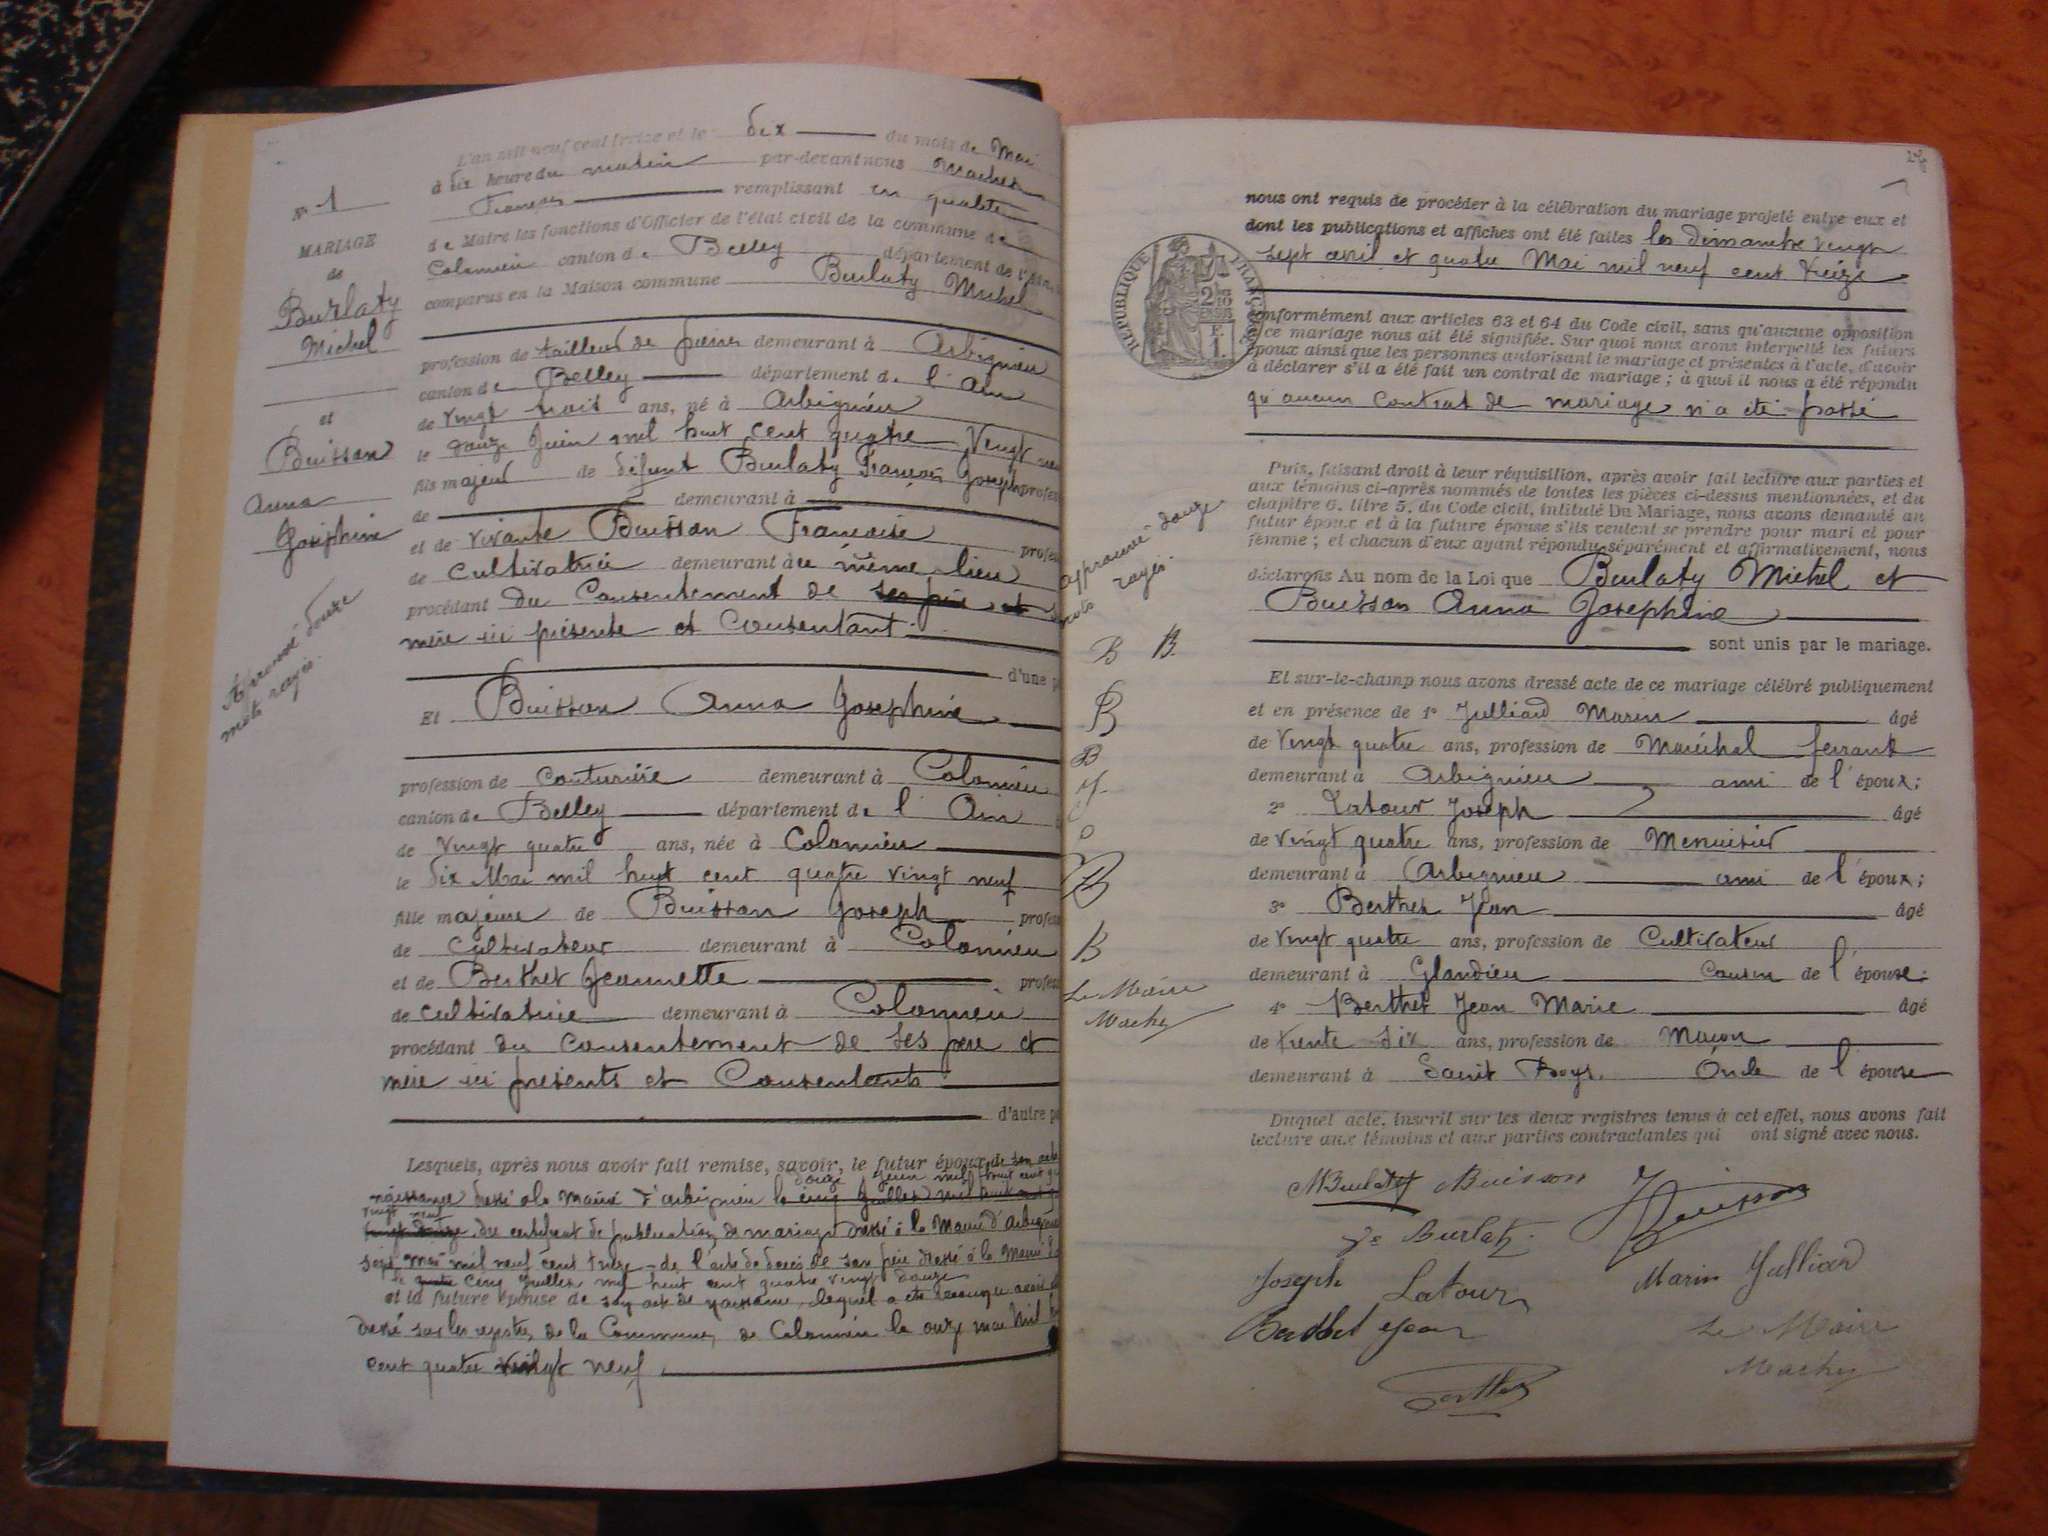 L'an mil neuf cent treize et le dix du mois de Mai
à dix heure du matin par-devant nous
remplissant en qualité
N° 1
de Maire les fonctions d'Officier de l'état civil de la commune de
MARIAGE
de
Burlaty
Michel
et
Buisson
Anna
Joséphine
Colomieu canton de Belley département de l'Ain
comparus en la Maison commune Burlaty Michel
profession de tailleur de pierres demeurant à Arbignieu
canton de Belley département de l'Ain
de vingt trois ans, né à Arbignieu
le douze Juin mil huit cent quatre Vingt
fils majeur de défunt Burlaty François Joseph profess
de demeurant à
et de vivante Buisson Françoise profess
de cultivatrice demeurant à même lieu
procédant du Consentement de ses père et
mère ici présente et Consentant
approuvé douze
mots rayés.
d'une p
Et Buisson Anna Joséphine
profession de Couturière demeurant à Colomieu
canton de Belley département de l'Ain
de vingt quatre ans, née à Colomieu
le dix Mai mil huit cent quatre vingt neuf
fille majeure de Buisson Joseph profess
de cultivateur demeurant à Colomieu
et de Berthet Jeannette profess
de cultivatrice demeurant à Colomieu
procédant du Consentement de ses père et
mère ici présents et Consentants
d'autre p
Lesquels, après nous avoir fait remise, savoir, le futur époux de son acte
douze Juin mil huit cent
naissance dressé à la Mairie d'Arbignieu le cinq Juillet mil huit cent
vingt neuf
vingt douze, du certificat de publication de mariage dressé à la Mairie d'Arbignieu
sept mai mil neuf cent treize, de l'acte de décès de son père dressé à la Mairie
le quatre cinq Juillet mil huit cent quatre vingt douze
et la future épouse de son acte de naissance, lequel a été
dressé sur les registres de la Commune de Colomieu le onze mai mil
cent quatre vingt neuf
nous ont requis de procéder à la célébration du mariage projeté entre eux et
dont les publications et affiches ont été faites les dimanche vingt
sept avril et quatre Mai mil neuf cent treize
RÉPUBLIQUE FRANÇAISE
2
10
EN SUS
F.
1.
conformément aux articles 63 et 64 du Code civil, sans qu'aucune opposition
à ce mariage nous ait été signifiée. Sur quoi nous avons interpellé les futurs
époux ainsi que les personnes autorisant le mariage et présentes à l'acte, d'avoir
à déclarer s'il a été fait un contrat de mariage ; à quoi il nous a été répondu
qu'aucun Contrat de mariage n'a été passé
Puis, faisant droit à leur réquisition, après avoir fait lecture aux parties et
aux témoins ci-après nommés de toutes les pièces ci-dessus mentionnées, et du
chapitre 6, titre 5, du Code civil, intitulé Du Mariage, nous avons demandé au
futur époux et à la future épouse s'ils veulent se prendre pour mari et pour
femme ; et chacun d'eux ayant répondu séparément et affirmativement, nous
déclarons Au nom de la Loi que Burlaty Michel et
Buisson Anna Joséphine
sont unis par le mariage.
approuvé douze
mots rayés.
B B.
B
B
J.
B
B
Le Maire
Et sur-le-champ nous avons dressé acte de ce mariage célébré publiquement
et en présence de 1° Julliard Marin âgé
de Vingt quatre ans, profession de Maréchal ferrant
demeurant à Arbignieu ami de l'époux ;
2° Latour Joseph âgé
de vingt quatre ans, profession de Menuisier
demeurant à Arbignieu ami de l'époux ;
3° Berthet Jean âgé
de vingt quatre ans, profession de Cultivateur
demeurant à Glandieu Cousin de l'épouse ;
4° Berthet Jean Marie âgé
de trente six ans, profession de Maçon
demeurant à Saint Oncle de l'épouse
Duquel acte, inscrit sur les deux registres tenus à cet effet, nous avons fait
lecture aux témoins et aux parties contractantes qui ont signé avec nous.
M Burlaty A Buisson
J Buisson
Burlaty
Joseph Latour Marin Julliard
Berthet Jean Le Maire
Berthet